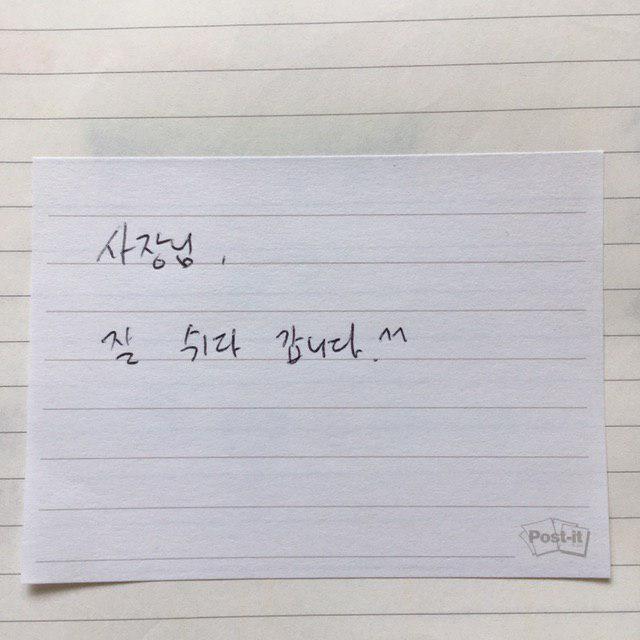 사장님,
잘 쉬다 갑니다.^^
Post-it